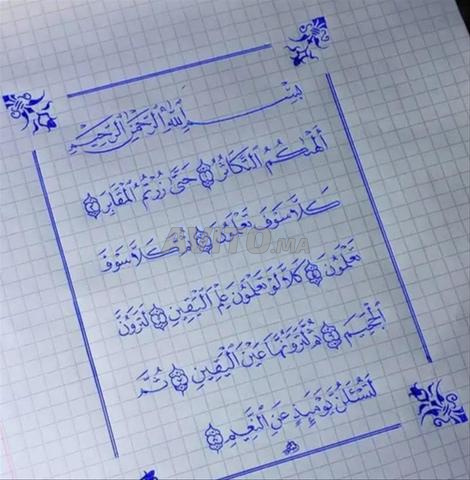 بِسْمِ اللَّهِ الرَّحْمَنِ الرَّحِيمِ
أَلْهَاكُمُ التَّكَاثُرُ ﴿١﴾ حَتَّى زُرْتُمُ الْمَقَابِرَ ﴿٢﴾
كَلَّا سَوْفَ تَعْلَمُونَ ﴿٣﴾ ثُمَّ كَلَّا سَوْفَ
AVITO.MA
تَعْلَمُونَ ﴿٤﴾ كَلَّا لَوْ تَعْلَمُونَ عِلْمَ الْيَقِينِ ﴿٥﴾ لَتَرَوُنَّ
الْجَحِيمَ ﴿٦﴾ ثُمَّ لَتَرَوُنَّهَا عَيْنَ الْيَقِينِ ﴿٧﴾ ثُمَّ
لَتُسْأَلُنَّ يَوْمَئِذٍ عَنِ النَّعِيمِ ﴿٨﴾